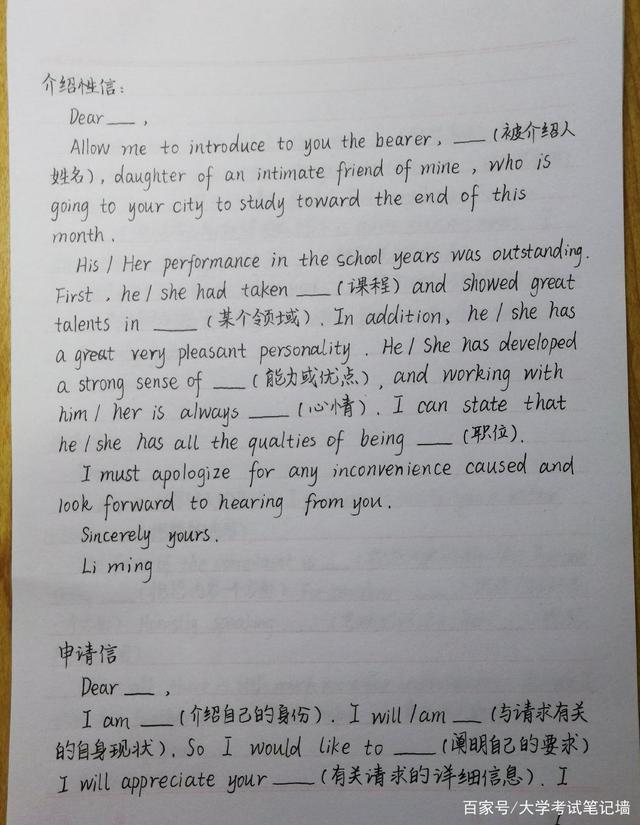 介绍性信:
Dear ___ ,
Allow me to introduce to you the bearer, ___ (被介绍人
姓名), daughter of an intimate friend of mine, who is
going to your city to study toward the end of this
month.
His / Her performance in the school years was outstanding.
First, he / she had taken ___ (课程) and showed great
talents in ____ (某个领域). In addition, he / she has
a great very pleasant personality. He / She has developed
a strong sense of ___ (能力或优点), and working with
him / her is always ____ (心情). I can state that
he / she has all the qualties of being ___ (职位).
I must apologize for any inconvenience caused and
look forward to hearing from you.
Sincerely yours.
Li ming
申请信
Dear ___ ,
I am ___ (介绍自己的身份). I will / am __ (与请求有关
的自身现状). So I would like to ____ (阐明自己的要求)
I will appreciate your ____ (有关请求的详细信息). I
百家号/大学考试笔记墙